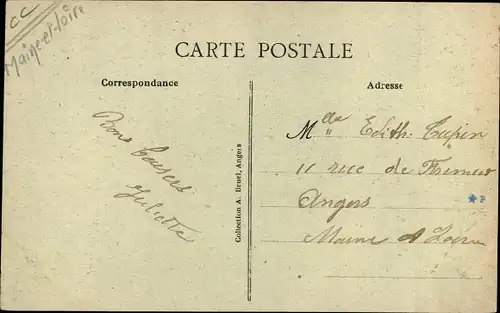 CC
Maine-et-Loire
CARTE POSTALE
Correspondance
Adresse
Bons
Baisers
Juliette
Collection A. Bruel, Angers
Mlle Edith Cupin
11 rue de
Angers
Maine et Loire